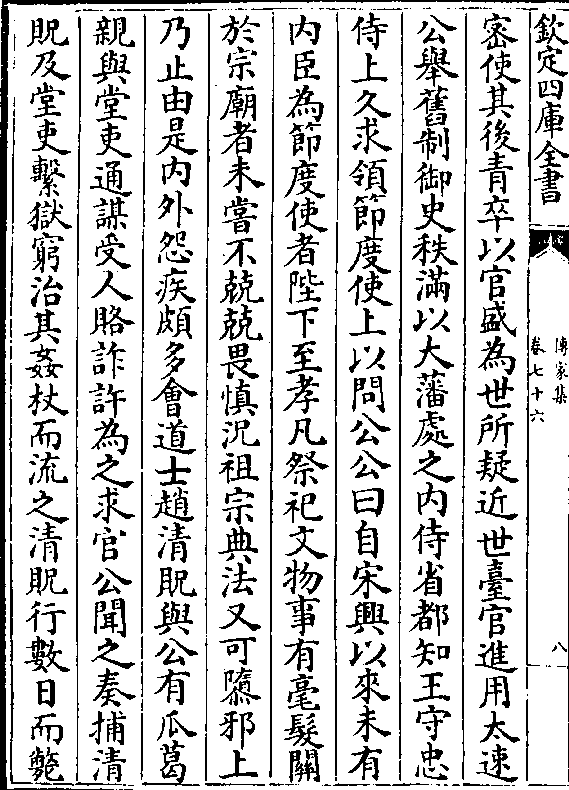 欽定四庫全書
傳家集
卷七十六
八
密使其後青卒以官盛為世所疑近世臺官進用太速
公舉舊制御史秩滿以大藩處之内侍省都知王守忠
侍上久求領節度使上以問公公曰自宋興以來未有
内臣為節度使者陛下至孝凡祭祀文物事有毫髮關
於宗廟者未嘗不兢兢畏慎況祖宗典法又可隳邪上
乃止由是内外怨疾頗多會道士趙清貺與公有瓜葛
親與堂吏通謀受人賂詐許為之求官公聞之奏捕清
貺及堂吏繫獄窮治其姦杖而流之清貺行數日而斃